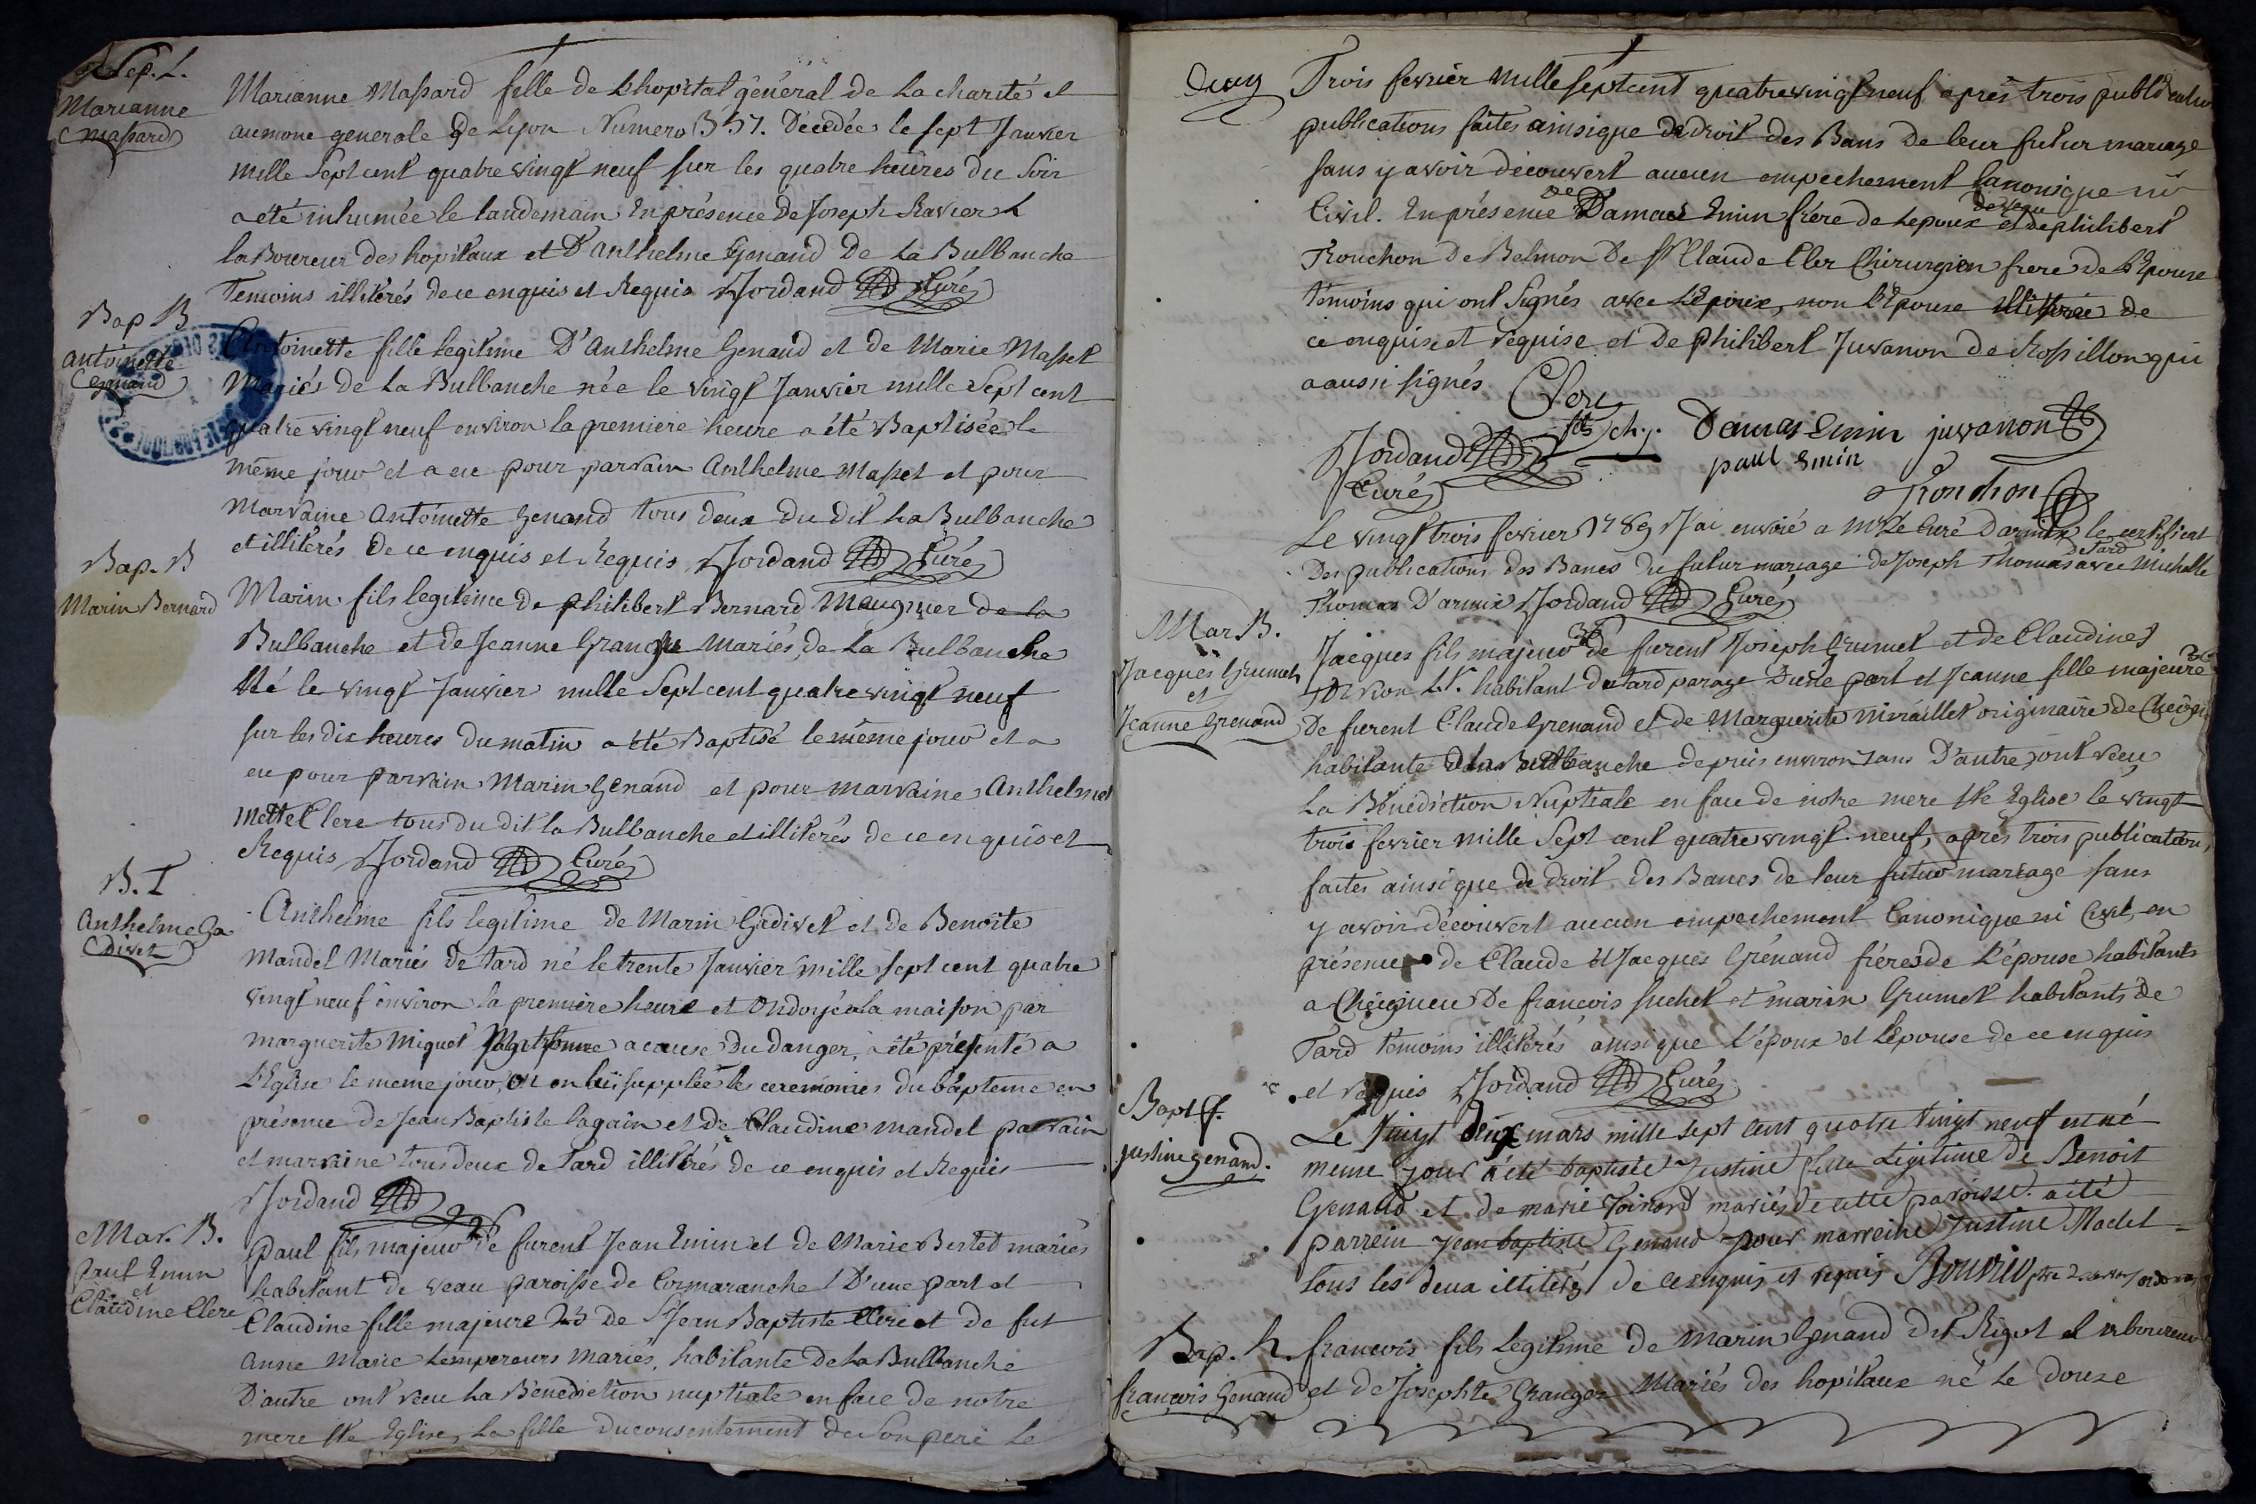 Sep. L.
Marianne
Massard
Marianne Massard fille de L'hopital géneral de La charité et
aumone generale de Lyon Numero B 57. Décedée le sept Janvier
mille Sept cent quatre vingt neuf sur les quatre heures du Soir
a été inhumée le landemain En présence de Joseph Ravier L
laBoureur des hopitaux et D'anthelme Genand De La Bulbanche
Temoins illiterés de ce enquis et Requis Jordand Curé
Bap B
antoinette
genand
Antoinette fille legitime D'anthelme Genand et de Marie Masset
Mariés de La Bulbanche née le vingt Janvier mille Sept cent
quatre vingt neuf environ la premiere heure a été Baptisée le
même jour et a eu pour parrain Anthelme Masset et pour
Marraine Antoinette Genand tous deux du dit La Bulbanche
et illiterés de ce enquis et Requis Jordand Curé
Bap. B
Marin Bernard
Marin fils legitime de philibert Bernard Maugnier de la
Bulbanche et de Jeanne Grange Mariés de La Bulbanche
Né le vingt Janvier mille Sept cent quatre vingt neuf
sur les dix heures du matin a été Baptisé le même jour et a
eu pour parrain Marin Genand et pour marraine Anthelme
Mette Clerc tous du dit la Bulbanche et illiterés de ce enquis et
Requis Jordand Curé
B. T
Anthelme Ga
divet
Anthelme fils legitime de Marin Gadivet et de Benoite
Mandel Mariés de tard né le trente Janvier mille sept cent quatre
vingt neuf environ la premiere heure et ondoyé a la maison par
marguerite Miguet sage femme a cause du danger, a été présenté a
L'Eglise le meme jour, ou on lui supplée les ceremonies du bâpteme en
présence de Jean Baptiste Cagain et de Claudine mandel parrain
et marraine tous deux de Tard illiterés de ce enquis et Requis
Jordand
Mar. B.
paul Emin
et
Claudine Clerc
26
paul fils majeur de furent Jean Emin et de Marie Bertet mariés
habitant de veau paroisse de Cormaranche D'une part et
Claudine fille majeure 23 de Jean Baptiste Clerc et de fut
anne Marie Lempereurs Mariés, habitante de La Bulbanche
D'autre ont recu La Bénédiction nuptiale en face de notre
mere Ste Eglise, La fille du consentement de son pere Le
deux
Trois fevrier mille septcent quatrevingt neuf après trois
publications faites ainsique de droit des Bans de leur futur mariage
sans y avoir découvert aucun empechement Canonique ni
de de veau
Civil. En présence Damas Emin frére de Lepoux et de philibert
Tronchon de Belmon De Sr Claude Cler Chirurgien frere de L'Epouse
témoins qui ont signés avec L'Epoux, non L'Epouse illitérée de
ce enquise et requise et de philibert Juvanon de Rossillon qui
a aussi signés
Clerc
fils chj. Damas Emin juvanon
Jordand paul Emin
Curé Tronchon
Le vingt trois fevrier 1789 J'ai envoié a Mr Le Curé Darmix le certificat
de Tard
Des publications des Bancs du futur mariage de Joseph Thomas avec Michelle
Thomas D'armix Jordand Curé
Mar. B.
Jacques Grumet
et
Jeanne Grenand
36
Jacques fils majeur de furent Joseph Grumet et de Claudine
habitant de tard parage D'une part et Jeanne fille majeure
De furent Claude Grenand et de Marguerite Miraillet originaire de
habitante de la Bulbanche depuis environ 7 ans D'autre, ont recu
La Bénédiction Nuptiale en face de notre mere Ste Eglise le vingt
trois fevrier mille Sept cent quatre vingt neuf, après trois publication,
faites ainsique de droit des Bancs de leur futur mariage sans
y avoir découvert aucun empechement Canonique ni Civil, en
présence de Claude et Jacques Grénand fréres de L'épouse habitants
a Cheignieu De francois Suchet et marin Grumet habitants de
Tard témoins illiterés ainsi que L'époux et L'epouse de ce enquis
et requis Jordand Curé
Bapt f.
justine genand.
Le vingt deux mars mille sept cent quatre vingt neuf est né
meme jour a été baptisée Justine fille Légitime de Benoit
Genand et de marie Toinard mariés de cette paroisse. a été
parrein jean baptiste Genand pour marreine justine Madel
tous les deux illiterés de ce enquis et requis Bouvier
Bap. h.
françois Genand
francois fils legitime de marin Genand dit Rigot laboureur
et de Josephte Granger Mariés des hopitaux né Le douze